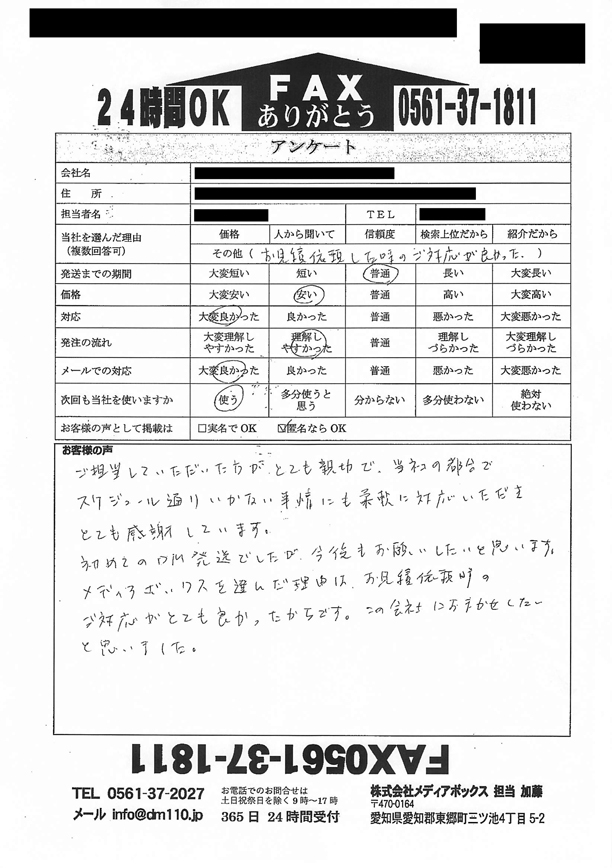 24時間OK
FAX
ありがとう
0561-37-1811
アンケート
会社名
住 所
担当者名 TEL
当社を選んだ理由
(複数回答可)
価格 人から聞いて 信頼度 検索上位だから 紹介だから
その他(お見積依頼した時のご対応が良かった。)
発送までの期間 大変短い 短い 普通 長い 大変長い
価格 大変安い 安い 普通 高い 大変高い
対応 大変良かった 良かった 普通 悪かった 大変悪かった
発注の流れ 大変理解しやすかった 理解しやすかった 普通 理解しづらかった 大変理解しづらかった
メールでの対応 大変良かった 良かった 普通 悪かった 大変悪かった
次回も当社を使いますか 使う 多分使うと思う 分からない 多分使わない 絶対使わない
お客様の声として掲載は □実名でOK ☑匿名ならOK
お客様の声
ご担当していただいた方が、とても親切で、当社の都合で
スケジュール通りいかない事情にも柔軟に対応いただき
とても感謝しています。
初めてのDM発送でしたが、今後もお願いしたいと思います。
メディアボックスを選んだ理由は、お見積依頼時の
ご対応がとても良かったからです。この会社にお任せしたい
と思いました。
FAX0561-37-1811
TEL 0561-37-2027
メール info@dm110.jp
お電話でのお問合せは
土日祝祭日を除く9時〜17時
365日 24時間受付
株式会社メディアボックス 担当 加藤
〒470-0164
愛知県愛知郡東郷町三ツ池4丁目5-2